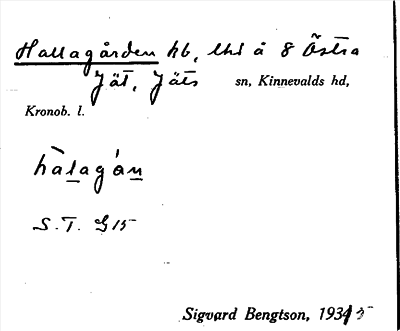 Hallagården hb, lht å 8 Östra
Jät, Jäts sn, Kinnevalds hd,
Kronob. l.
hàlagán
S.T. G15
Sigvard Bengtson, 1935